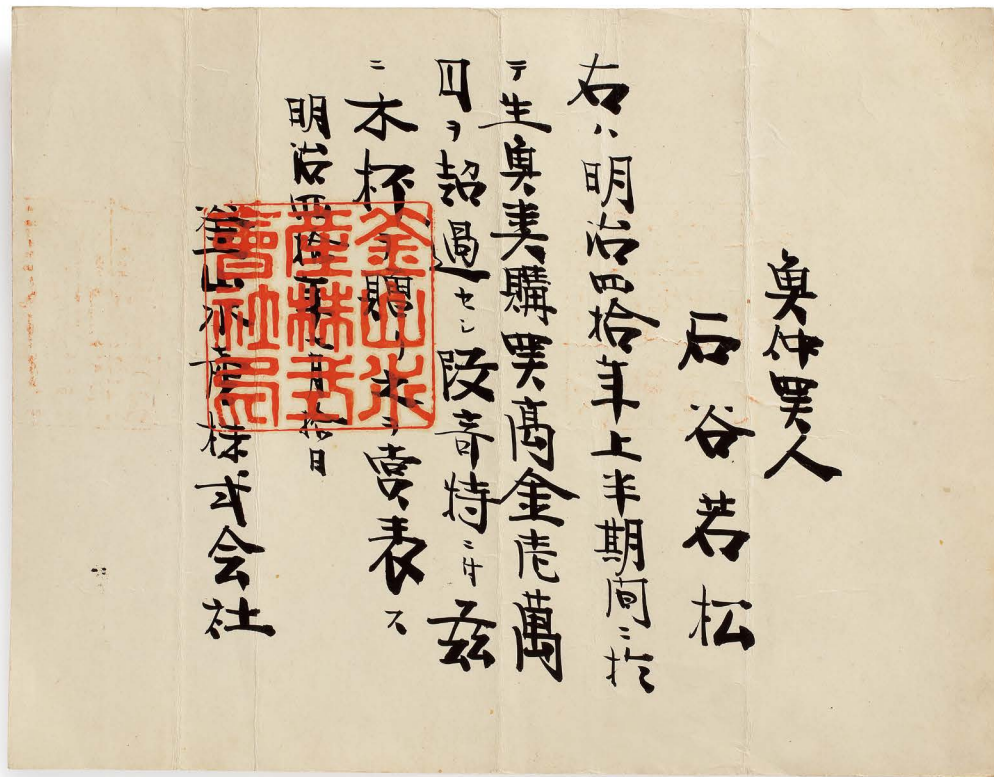 魚仲買人
石谷若松
右ハ明治四拾年上半期間ニ於
テ生魚売購買高金壱萬
円ヲ超過セシ段奇特ニ付茲
ニ木杯 贈リ之ヲ賞表ス
明治四拾 月拾日
釜山水産株式会社
釜山水
産株式
會社印